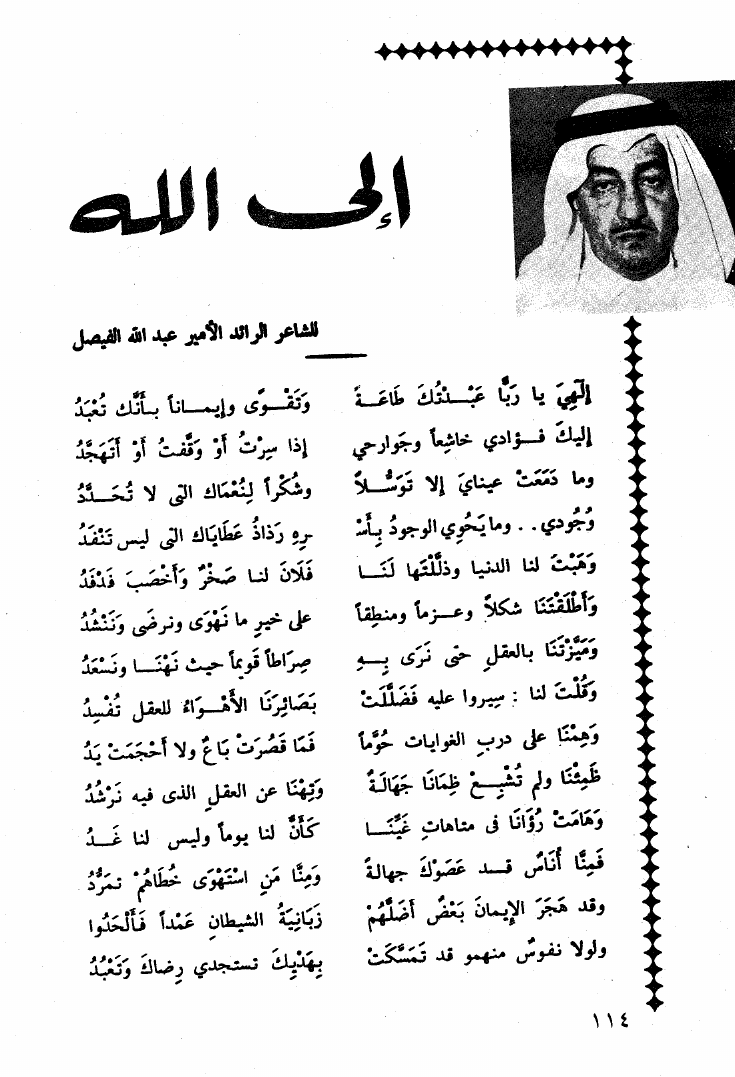 إلى الله
للشاعر الرائد الأمير عبد الله الفيصل
إلَهِيَ يا رَبًّا عَبَـدْتُكَ طَاعَـةً وَتَقْـوًى وإيمـاناً بـأَنَّك تُعْبَدُ
إليكَ فـؤادي خاشِعاً وجَوارحي إذا سِرْتُ أَوْ وَقَّفتُ أَوْ أَتَهَجَّدُ
وما دَمَعَتْ عينايَ إلا تَوَسُّـلاً وشُكْراً لِنُعْمَاك التى لا تُحَـدَّدُ
وُجُودي . . وما يَحْوِي الوجودُ بِأَسْـ ـرِهِ رَذاذُ عَطَايَاك التى ليس تَنْفَدُ
وَهَبْتَ لنا الدنيا وذلَّلْتَها لَنَـا فَلَانَ لنـا صَخْرٌ وَأَخْصَبَ فَدْفَدُ
وَأَطْلَقْتَنَا شكلاً وعـزماً ومنطِقاً على خيرِ ما نَهْوَى ونرضَى وَنَنْشُدُ
وَمَيَّزْتَنَا بالعقلِ حتى نَرَى بِـهِ صِرَاطاً قوِيماً حيث نَهْنَـا ونَسْعَدُ
وَقُلْتَ لنا : سِيروا عليه فَضَلَّلَتْ بَصَائِرَنَا الأَهْـوَاءُ للعقل تُفْسِدُ
وَهِمْنَا على دربِ الغوايات حُوَّماً فَمَا قَصُرَتْ بَاعٌ ولا أَحْجَمَتْ يَدُ
ظَمِئْنَا ولم تُشْبِـعْ ظِمَانَا جَهَالَةٌ وَتِهْنَا عن العقلِ الذى فيه نَرْشُدُ
وَهَامَتْ رُؤَانَا فى متاهاتِ غَيِّنَـا كَأَنَّ لنا يوماً وليس لنا غَـدُ
فَمِنَّا أُنَاسٌ قـد عَصَوْكَ جهالةً وَمِنَّا مَنِ اسْتَهْوَى خُطَاهُمْ تمَرُّدُ
وقد هَجَرَ الإيمانَ بَعْضٌ أَضَلَّهُمْ زَبَانِيَةُ الشيطانِ عَمْداً فَـأَلْحَدُوا
ولولا نفوسٌ منهمو قد تَمَسَّكَتْ بِهَدْيِكَ تستجدي رِضاكَ وَتَعْبُدُ
١١٤